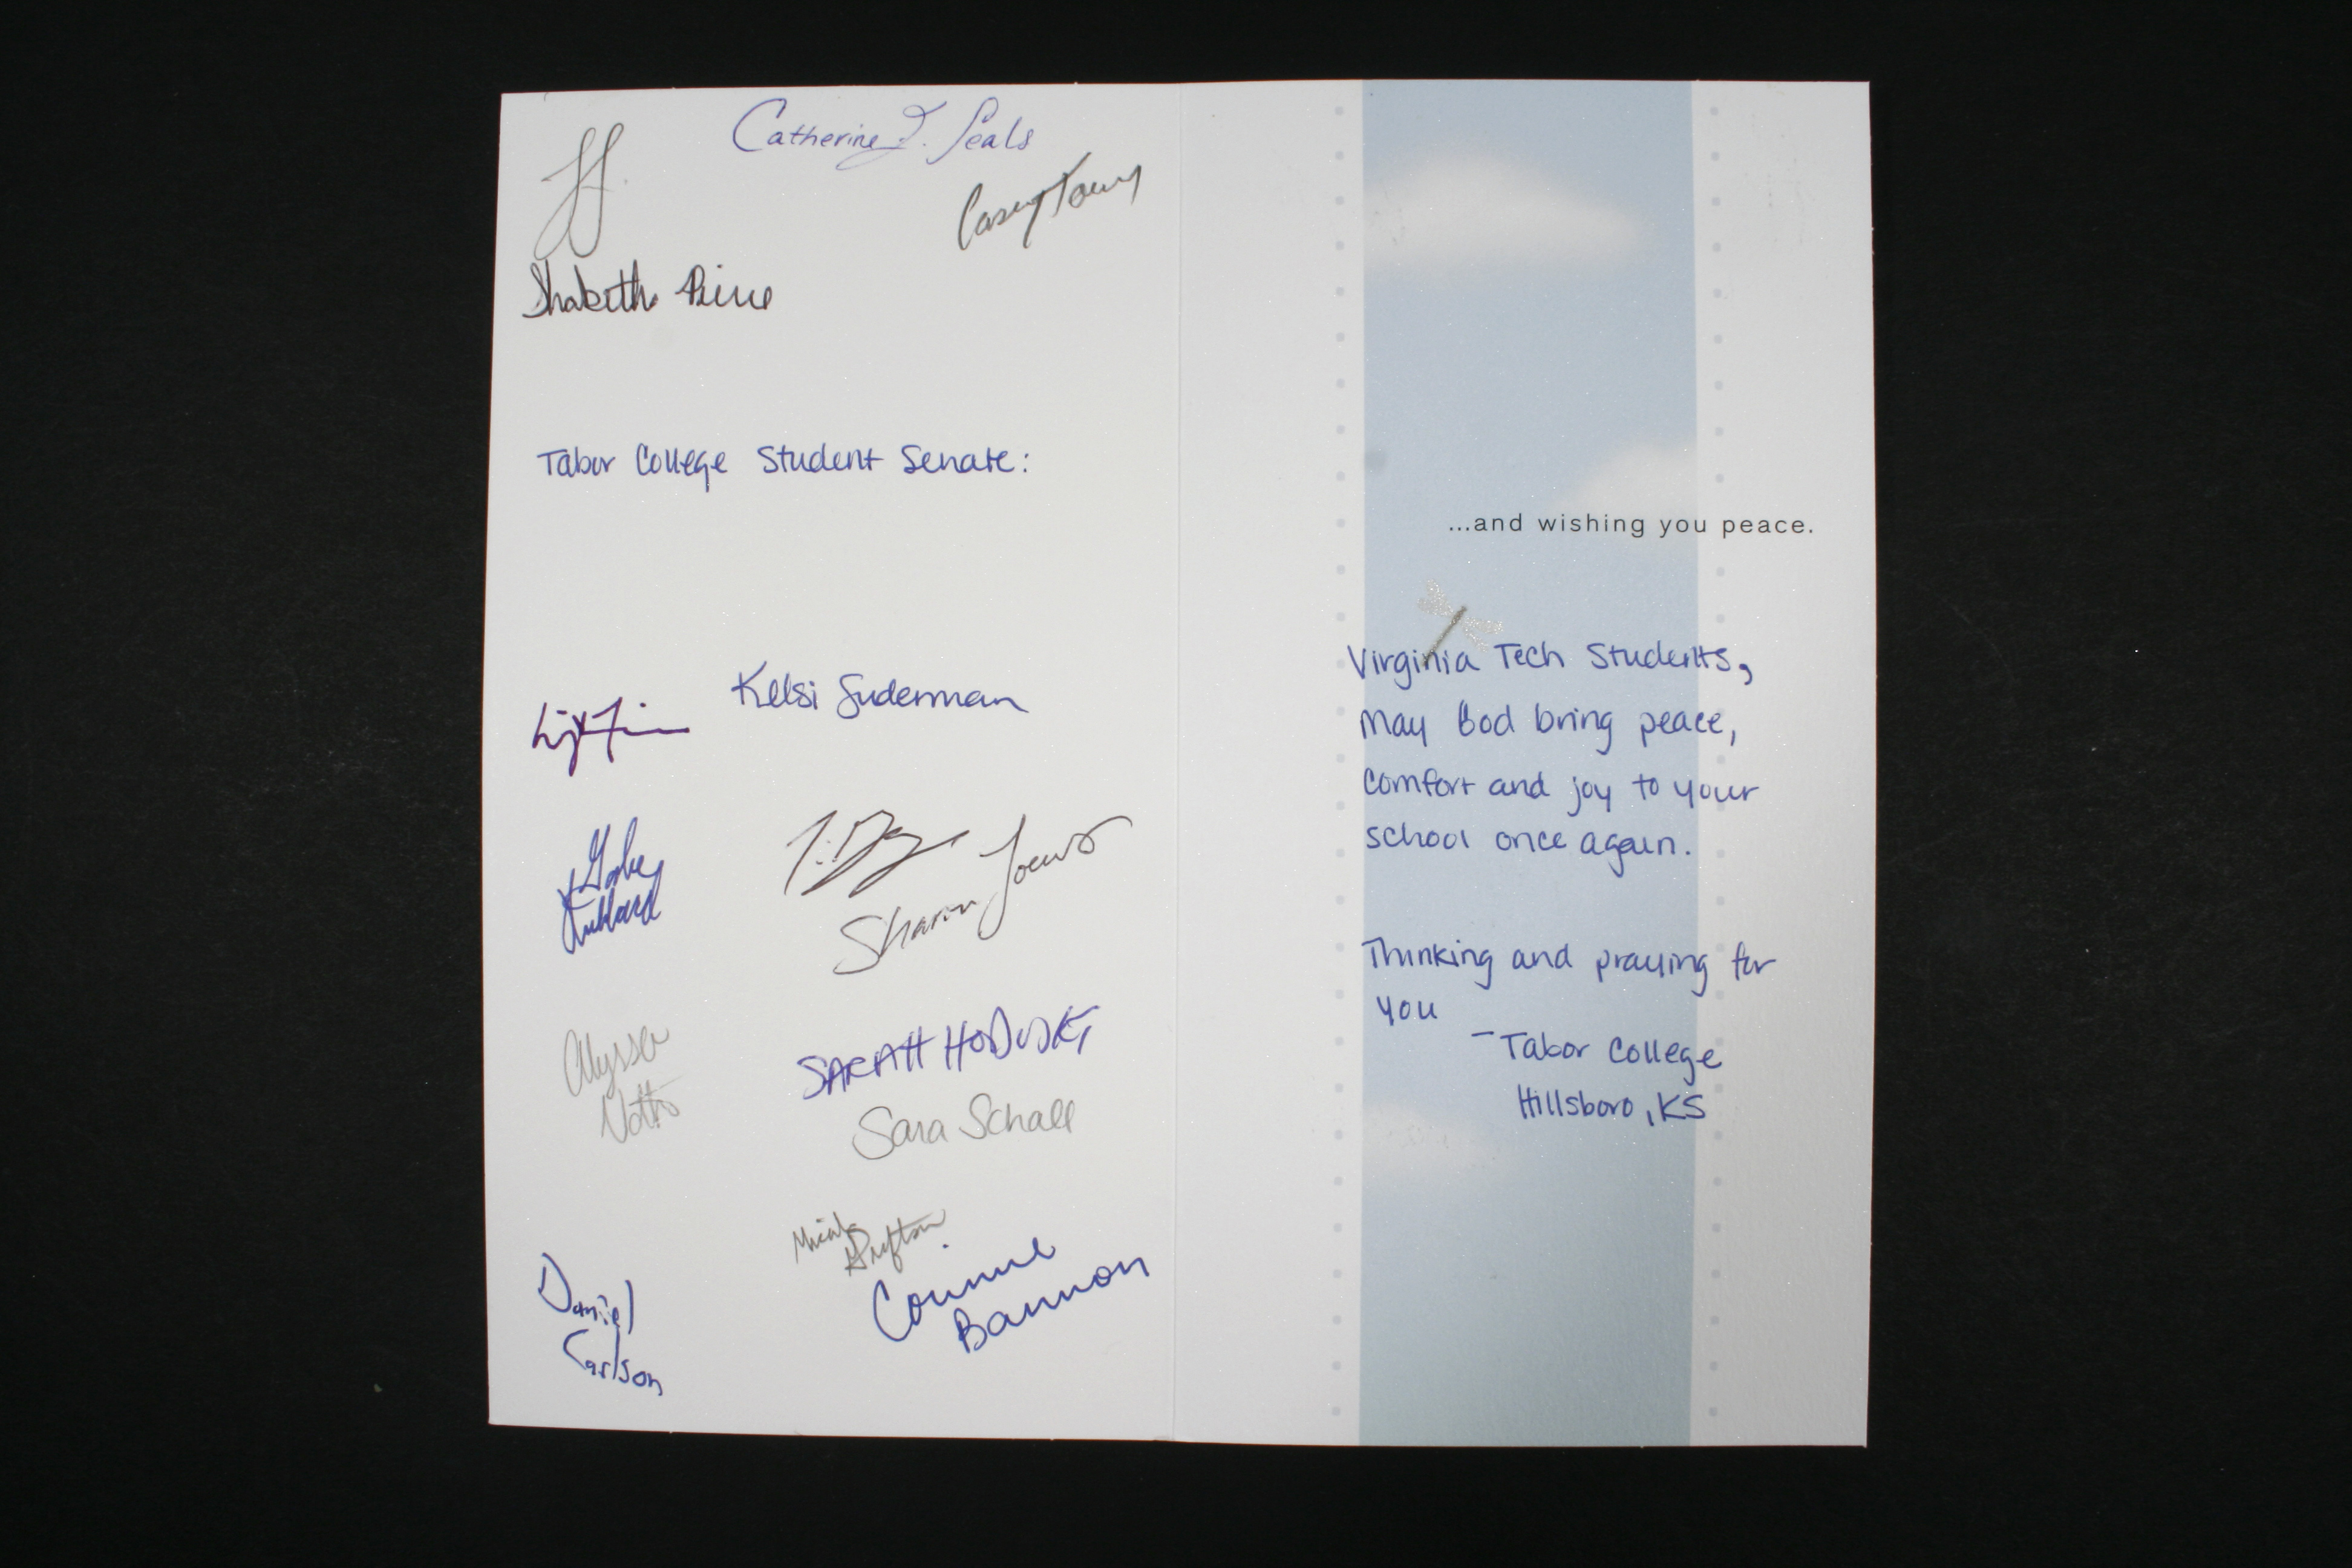 Catherine J. Seals
Casey
Tabor College Student Senate:
Kelsi Suderman
Sharon Loewen
Alyssa
SARAH HODUSKI
Sara Schall
Micah
Connie
Bannon
Daniel
Carlson
...and wishing you peace.
Virginia Tech Students,
May God bring peace,
comfort and joy to your
school once again.
Thinking and praying for
you
- Tabor College
Hillsboro, KS